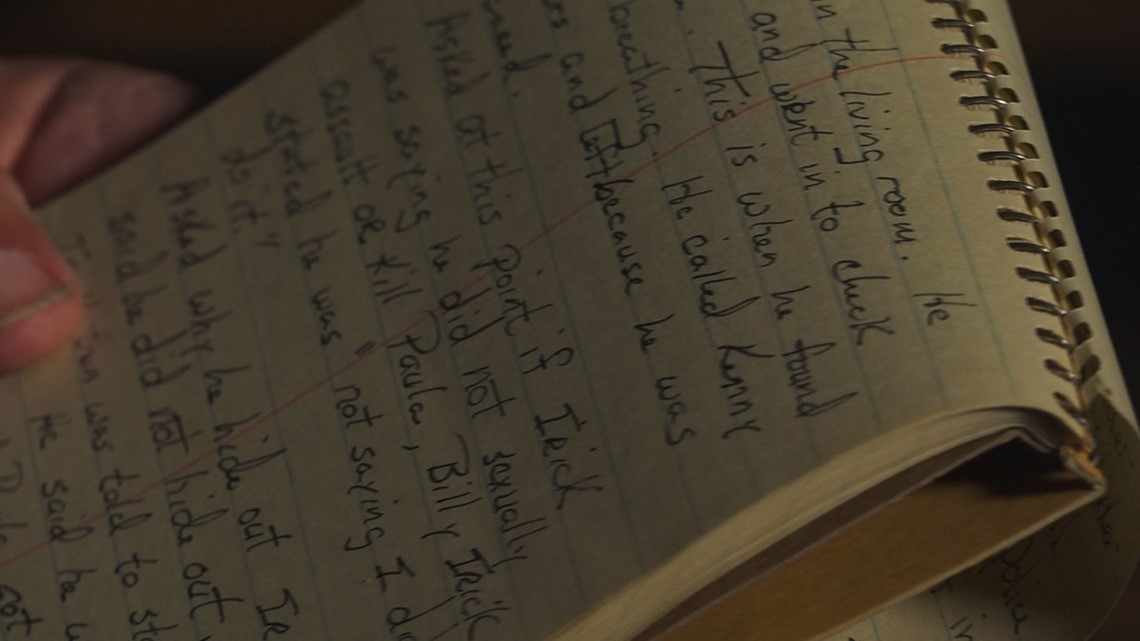 in the living room. He
and went in to check
This is when he found
breathing. He called Kenny
and left because he was
Asked at this point if Irick
was saying he did not sexually
assault or kill Paula, Billy Irick
stated he was not saying I
do it."
Asked why he hide out
said he did not hide out
was told to
He said he
got